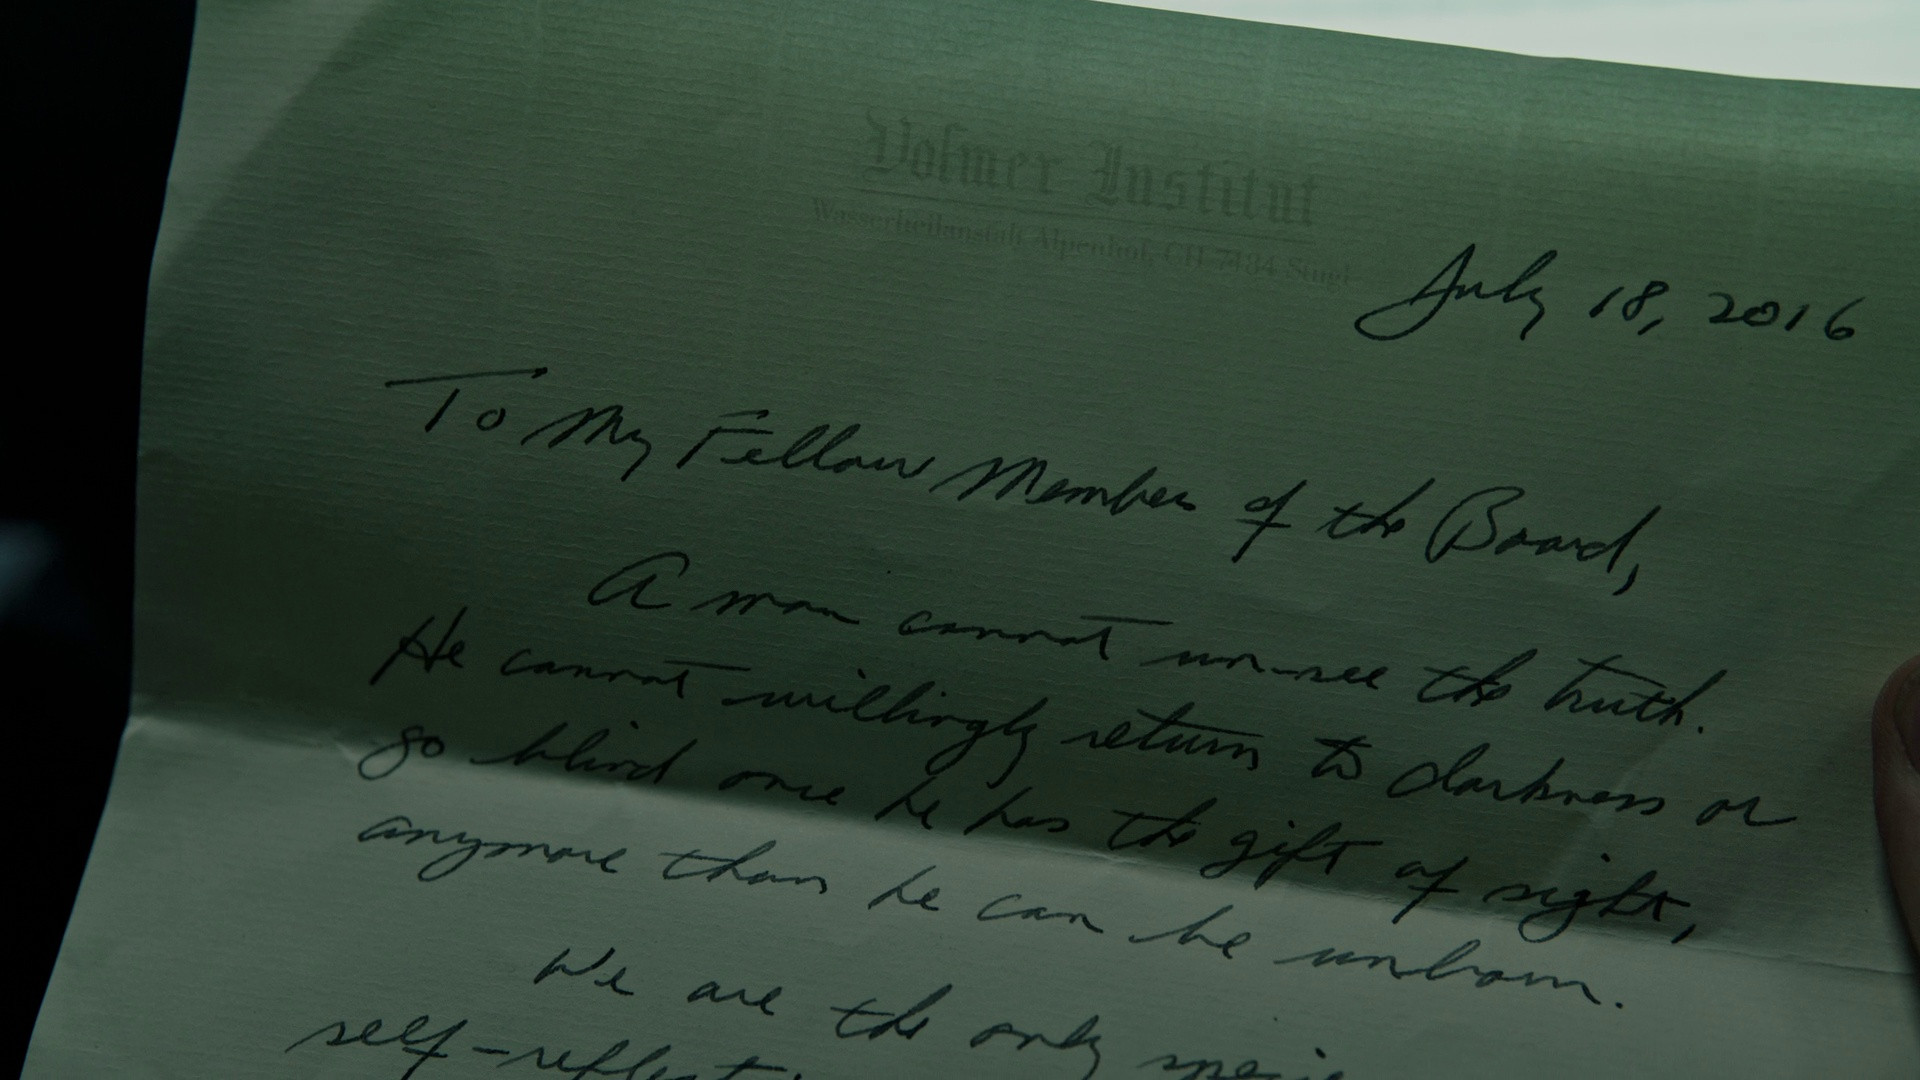 Volmer Institut
Wasserheilanstalt Alpenhof, CH 7134
July 18, 2016
To My Fellow Members of the Board,
A man cannot un-see the truth.
He cannot willingly return to darkness or
go blind once he has the gift of sight,
anymore than he can be unborn.
We are the only